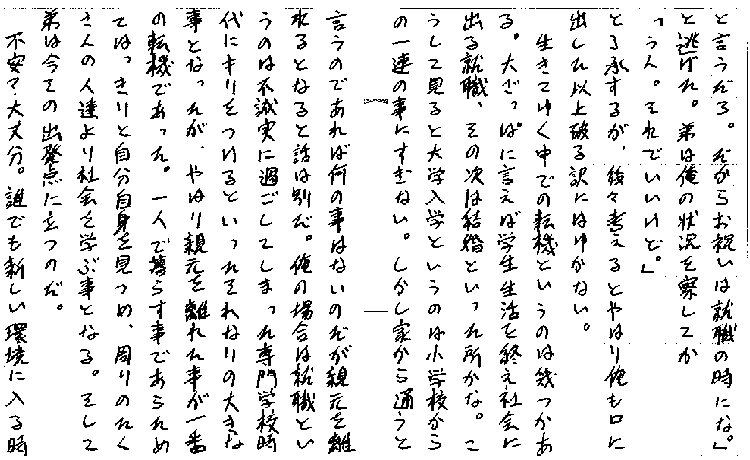 と言うだろ。だからお祝いは就職の時にな。」
と逃げた。弟は俺の状況を察してか
「うん。それでいいけど。」
と了承するが、後々考えるとやはり俺も口に
出した以上破る訳にはゆかない。
生きてゆく中での転機というのは幾つかあ
る。大ざっぱに言えば学生生活を終え社会に
出る就職、その次は結婚といった所かな。こ
うして見ると大学入学というのは小学校から
の一連の事にすぎない。しかし家から通うと
言うのであれば何の事はないのだが親元を離
れるとなると話は別だ。俺の場合は就職とい
うのは不誠実に過ごしてしまった専門学校時
代にキリをつけるといったそれなりの大きな
事となったが、やはり親元を離れた事が一番
の転機であった。一人で暮らす事であらため
てはっきりと自分自身を見つめ、周りのたく
さんの人達より社会を学ぶ事となる。そして
弟は今その出発点に立つのだ。
不安で大丈分。誰でも新しい環境に入る時